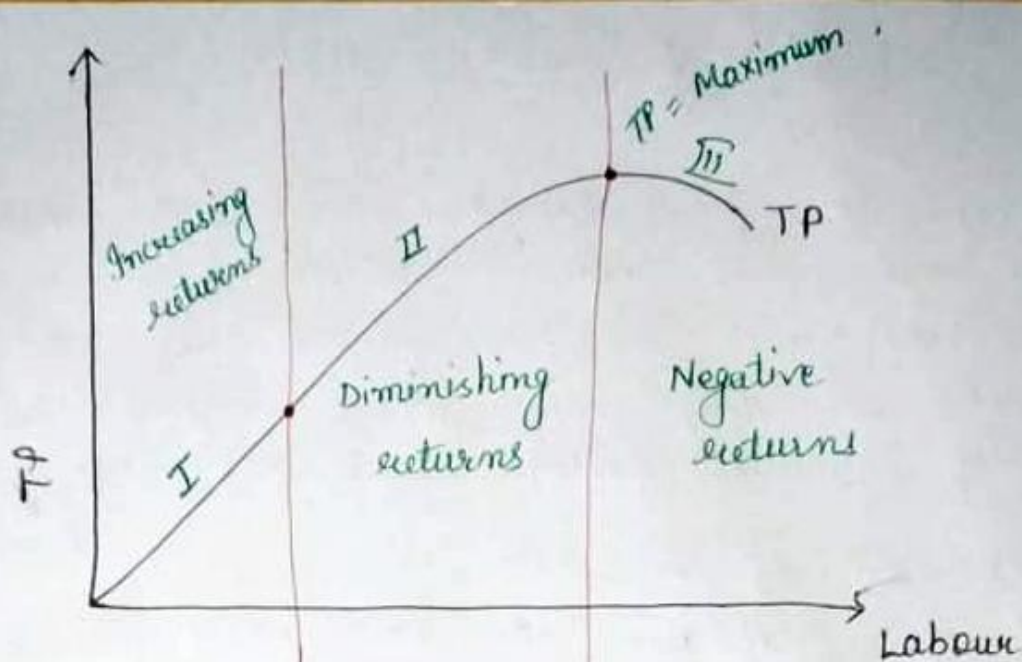 TP = Maximum
III
TP
Increasing
returns
II
Diminishing
returns
Negative
returns
I
TP
Labour